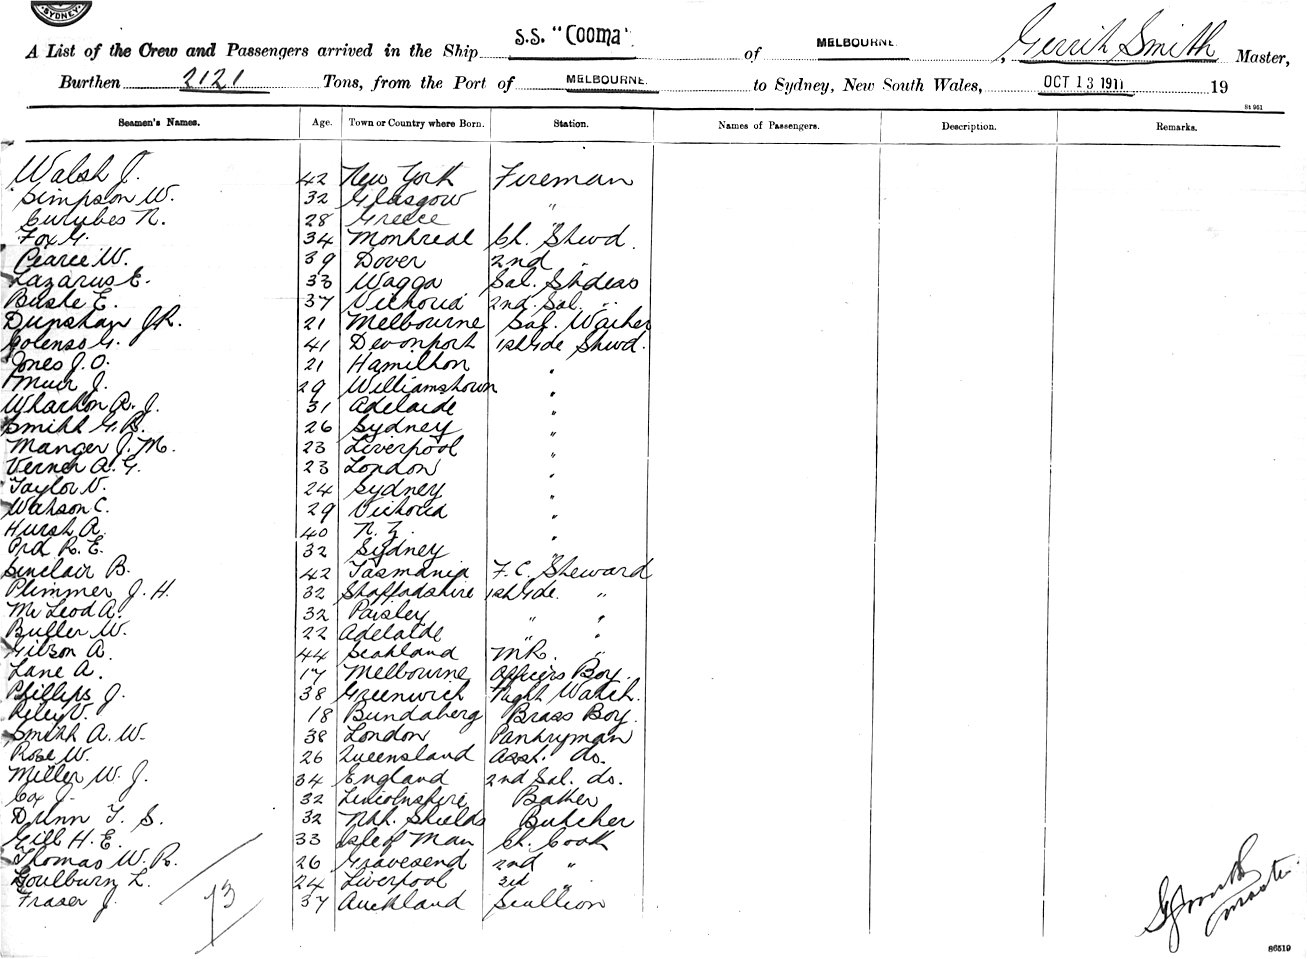 SYDNEY
A List of the Crew and Passengers arrived in the Ship S.S. "Cooma" of MELBOURNE, Gerrit Smith Master,
Burthen 2121 Tons, from the Port of MELBOURNE to Sydney, New South Wales, OCT 13 1911 19
St 961
Seamen's Names. Age. Town or Country where Born. Station. Names of Passengers. Description. Remarks.
Walsh J. 42 New York Fireman
Simpson W. 32 Glasgow "
N. 28 Greece "
Fox G. 34 Montreal Ch. Stwd.
Pearce W. 39 Dover 2nd "
Lazarus E. 33 Wagga Sal. Stdess
E. 37 Victoria 2nd Sal. "
Dunstan J.R. 21 Melbourne Sal. Waiter
Colenso G. 41 Devonport 1st Gde Stwd.
Jones J. O. 21 Hamilton "
Muir J. 29 Williamstown "
Wharton A. J. 31 Adelaide "
Smith G. B. 26 Sydney "
Manger J. M. 23 Liverpool "
Verner A. G. 23 London "
Taylor V. 24 Sydney "
Watson C. 29 Victoria "
Hurst A. 40 N. Z. "
Ord R. E. 32 Sydney "
Sinclair B. 42 Tasmania F. C. Steward
Plimmer J. H. 32 Staffordshire 1st Gde. "
McLeod A. 32 Paisley " "
Butler W. 22 Adelaide " "
Gibson A. 44 Scotland M R. "
Lane A. 17 Melbourne Officers Boy.
Phillips J. 38 Greenwich Night Watch.
Riley V. 18 Bundaberg Brass Boy.
Smith A. W. 38 London Pantryman
Rose W. 26 Queensland Asst. do.
Miller W. J. 34 England 2nd Sal. do.
Cox J. 32 Lincolnshire Baker
Dunn T. S. 32 Nth. Shields Butcher
Gill H. E. 33 Isle of Man Ch. Cook
Thomas W. R. 26 Gravesend 2nd "
Goulburn L. 24 Liverpool 3rd "
Fraser J. 37 Auckland Scullion
73
G Smith
Master
86519